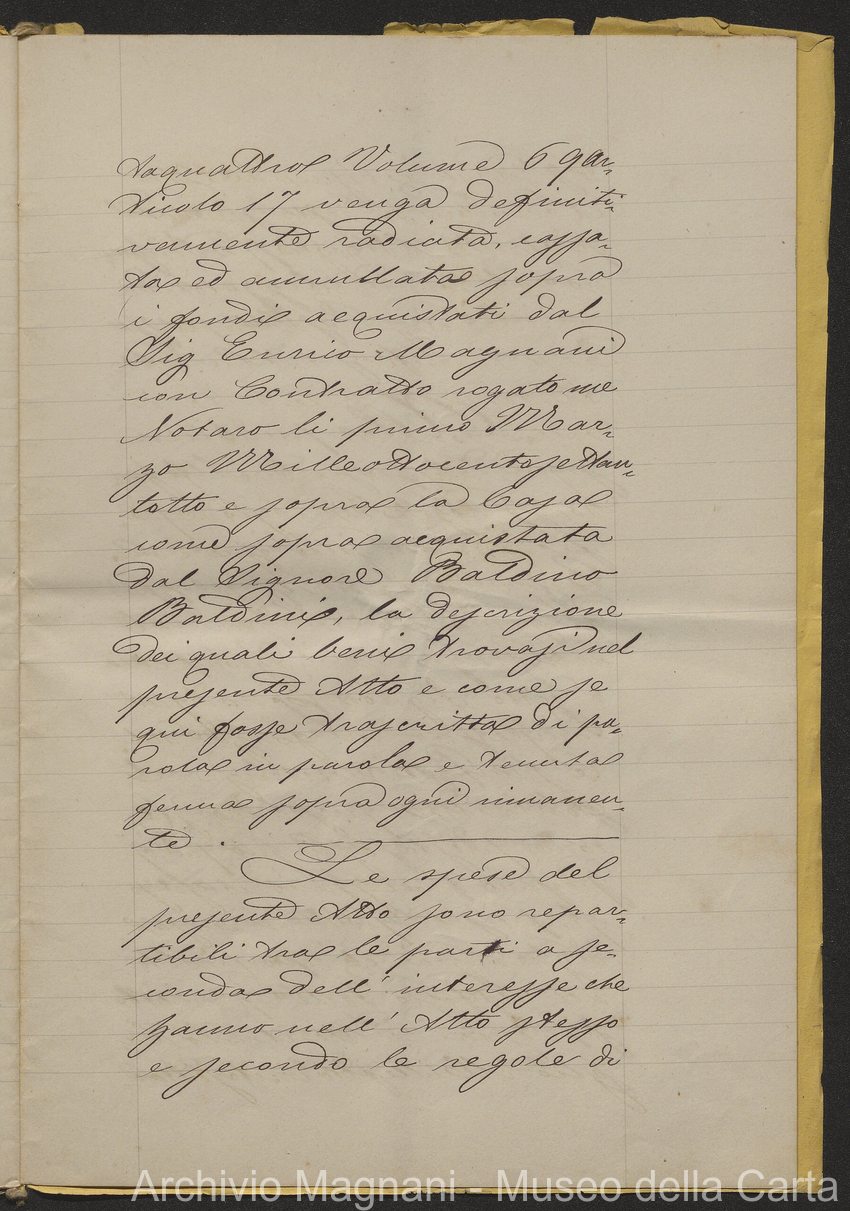 taquattro Volume 69 ar-
ticolo 17 venga definiti-
vamente radiata, cassa-
ta ed annullata sopra
i fondi acquistati dal
Sig Enrico Magnani
con Contratto rogato me
Notaro li primo Mar-
zo Milleottocentosettan-
totto e sopra la Casa
come sopra acquistata
dal Signore Baldino
Baldini, la descrizione
dei quali beni trovasi nel
presente Atto e come se
qui fosse trascritta di pa-
rola in parola e tenuta
ferma sopra ogni rimanen-
te.
Le spese del
presente Atto sono repar-
tibili tra le parti a se-
conda dell' interesse che
hanno nell' Atto stesso
e secondo le regole di
Archivio Magnani - Museo della Carta